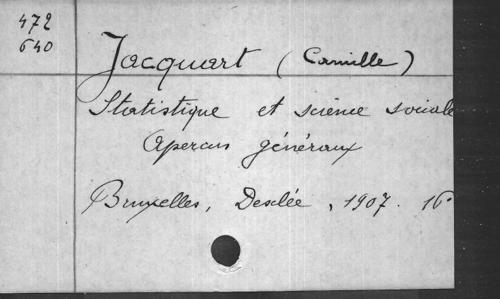 472
640
Jacquart (Camille)
Statistique et science sociale
Aperçus généraux
Bruxelles, Desclée, 1907. 16°